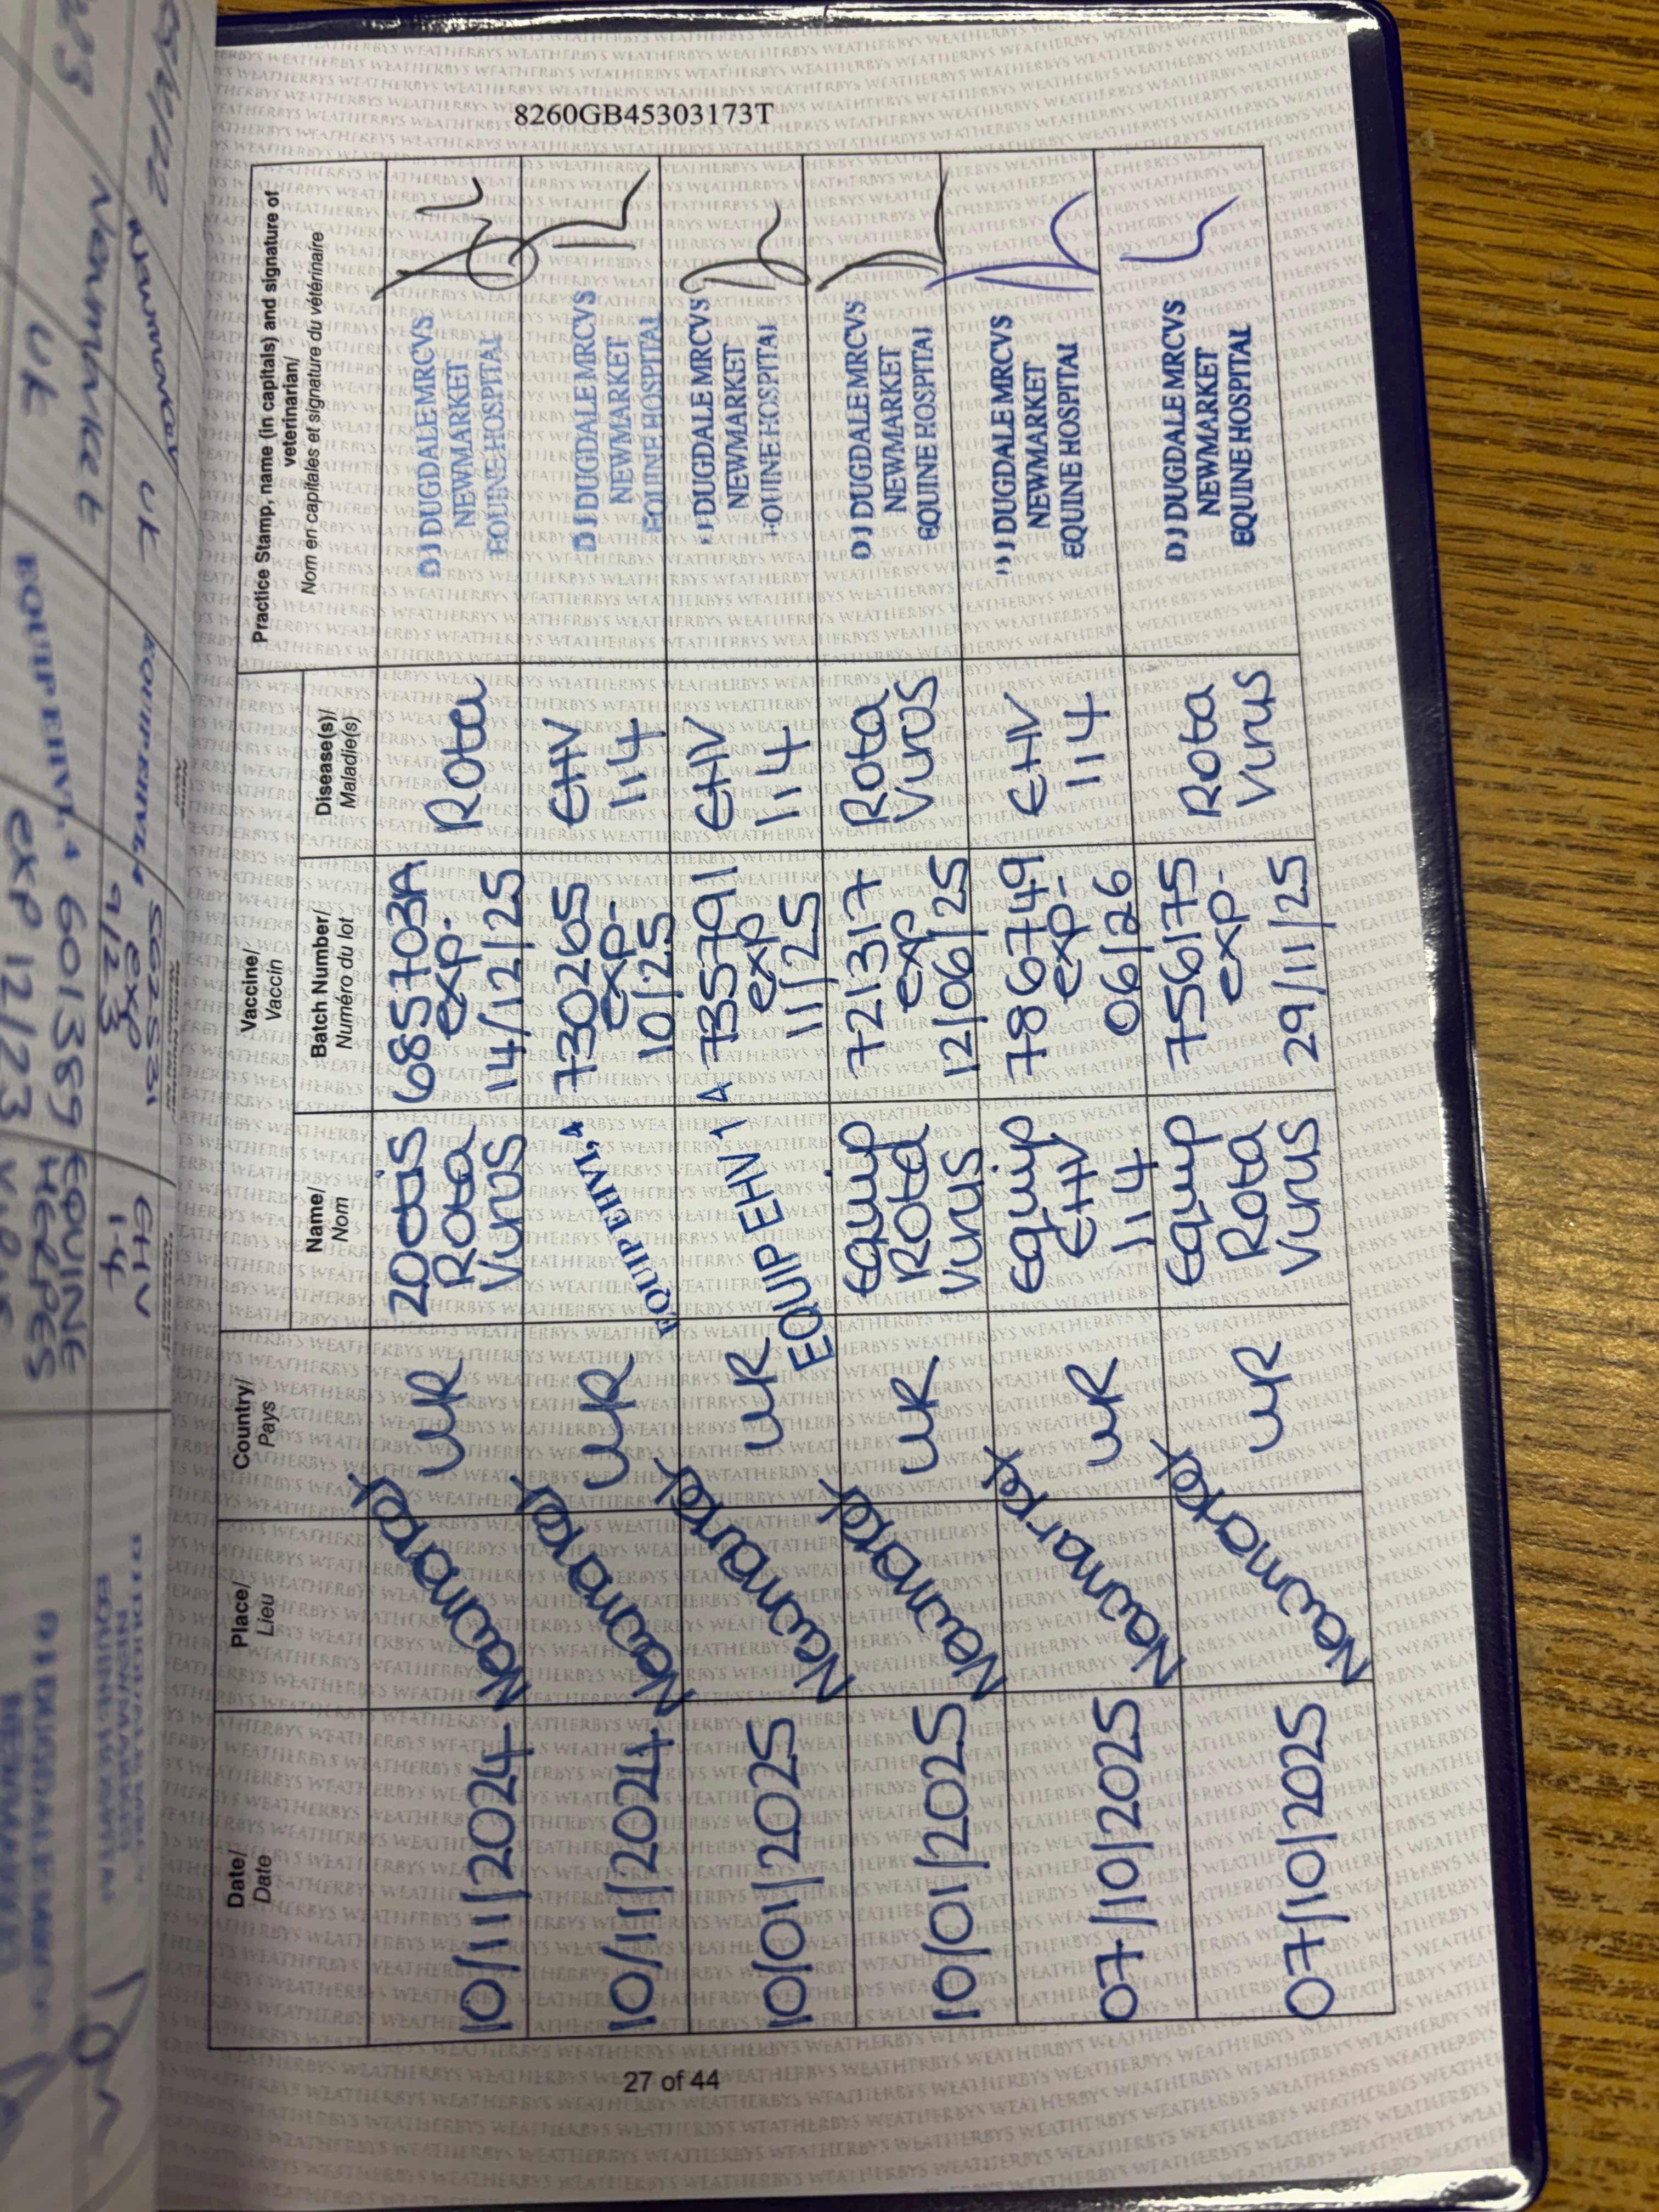 8260GB45303173T
Date/
Date
Place/
Lieu
Country/
Pays
Vaccine/
Vaccin
Name/
Nom
Batch Number/
Numéro du lot
Disease(s)/
Maladie(s)
Practice Stamp, name (in capitals) and signature of
veterinarian/
Nom en capitales et signature du vétérinaire
10/11/2024 Newmarket UK
Zoetis
Rota
Virus
685703A
exp.
14/12/25
Rota
DJ DUGDALE MRCVS
NEWMARKET
EQUINE HOSPITAL
10/11/2024 Newmarket UK
EQUIP EHV1,4
730265
exp-
10/25
EHV
1,4
DJ DUGDALE MRCVS
NEWMARKET
EQUINE HOSPITAL
10/01/2025 Newmarket UK
EQUIP EHV 1 4
735791
exp
11/25
EHV
1,4
DJ DUGDALE MRCVS
NEWMARKET
EQUINE HOSPITAL
10/01/2025 Newmarket UK
Equip
Rota
Virus
721317
exp
12/06/25
Rota
Virus
DJ DUGDALE MRCVS
NEWMARKET
EQUINE HOSPITAL
07/10/2025 Newmarket UK
Equip
EHV
114
786749
exp-
06/26
EHV
114
DJ DUGDALE MRCVS
NEWMARKET
EQUINE HOSPITAL
07/10/2025 Newmarket UK
Equip
Rota
Virus
756175
exp-
29/11/25
Rota
Virus
DJ DUGDALE MRCVS
NEWMARKET
EQUINE HOSPITAL
27 of 44
UK
EQUIP EHV1,4
exp
9/23
EHV
1-4
Newmarket
UK
EQUIP EHV1,4
601389
exp 12/23
EQUINE
HERPES
DJ DUGDALE MRCVS
NEWMARKET
EQUINE HOSPITAL